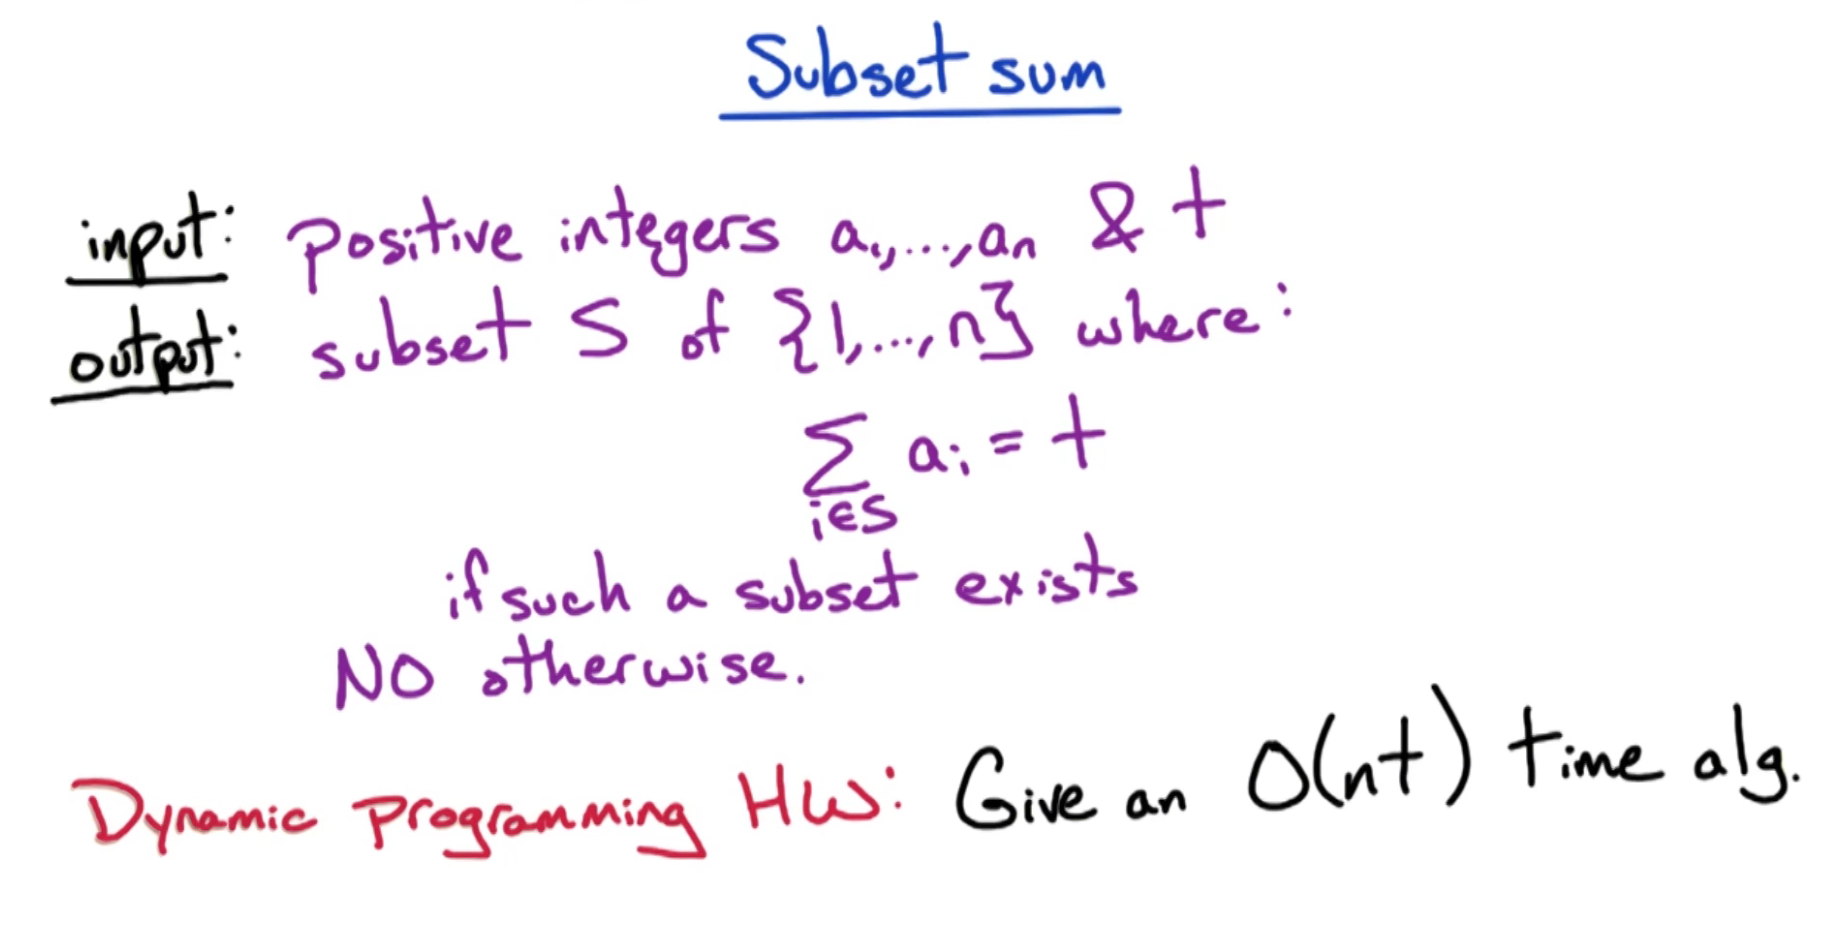 Subset sum
input: positive integers a₁,...,aₙ & t
output: subset S of {1,...,n} where:
∑ aᵢ = t
i∈S
if such a subset exists
NO otherwise.
Dynamic Programming HW: Give an O(nt) time alg.